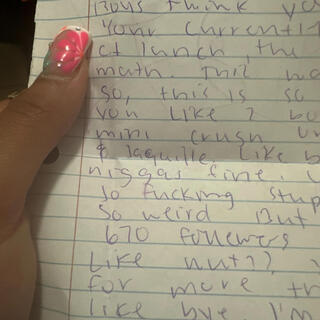 Boys think yo
Your current
at lunch, the
math. This
So, this is so
you like 2
mini crush
& Jaquille like
niggas fine.
so fucking stup
so weird But
670 followers
Like nutz?
for more
like bye. I'm